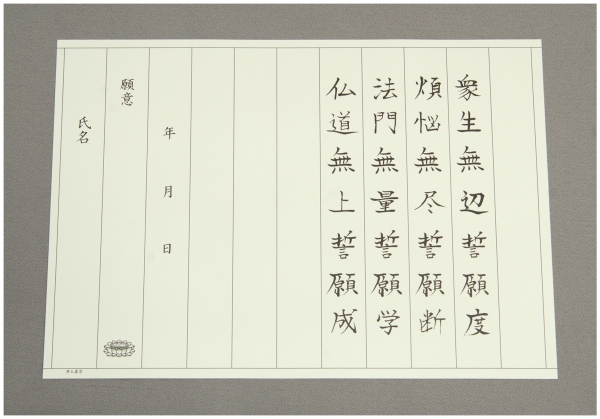 衆生無辺誓願度
煩悩無尽誓願断
法門無量誓願学
仏道無上誓願成
年 月 日
願意
氏名